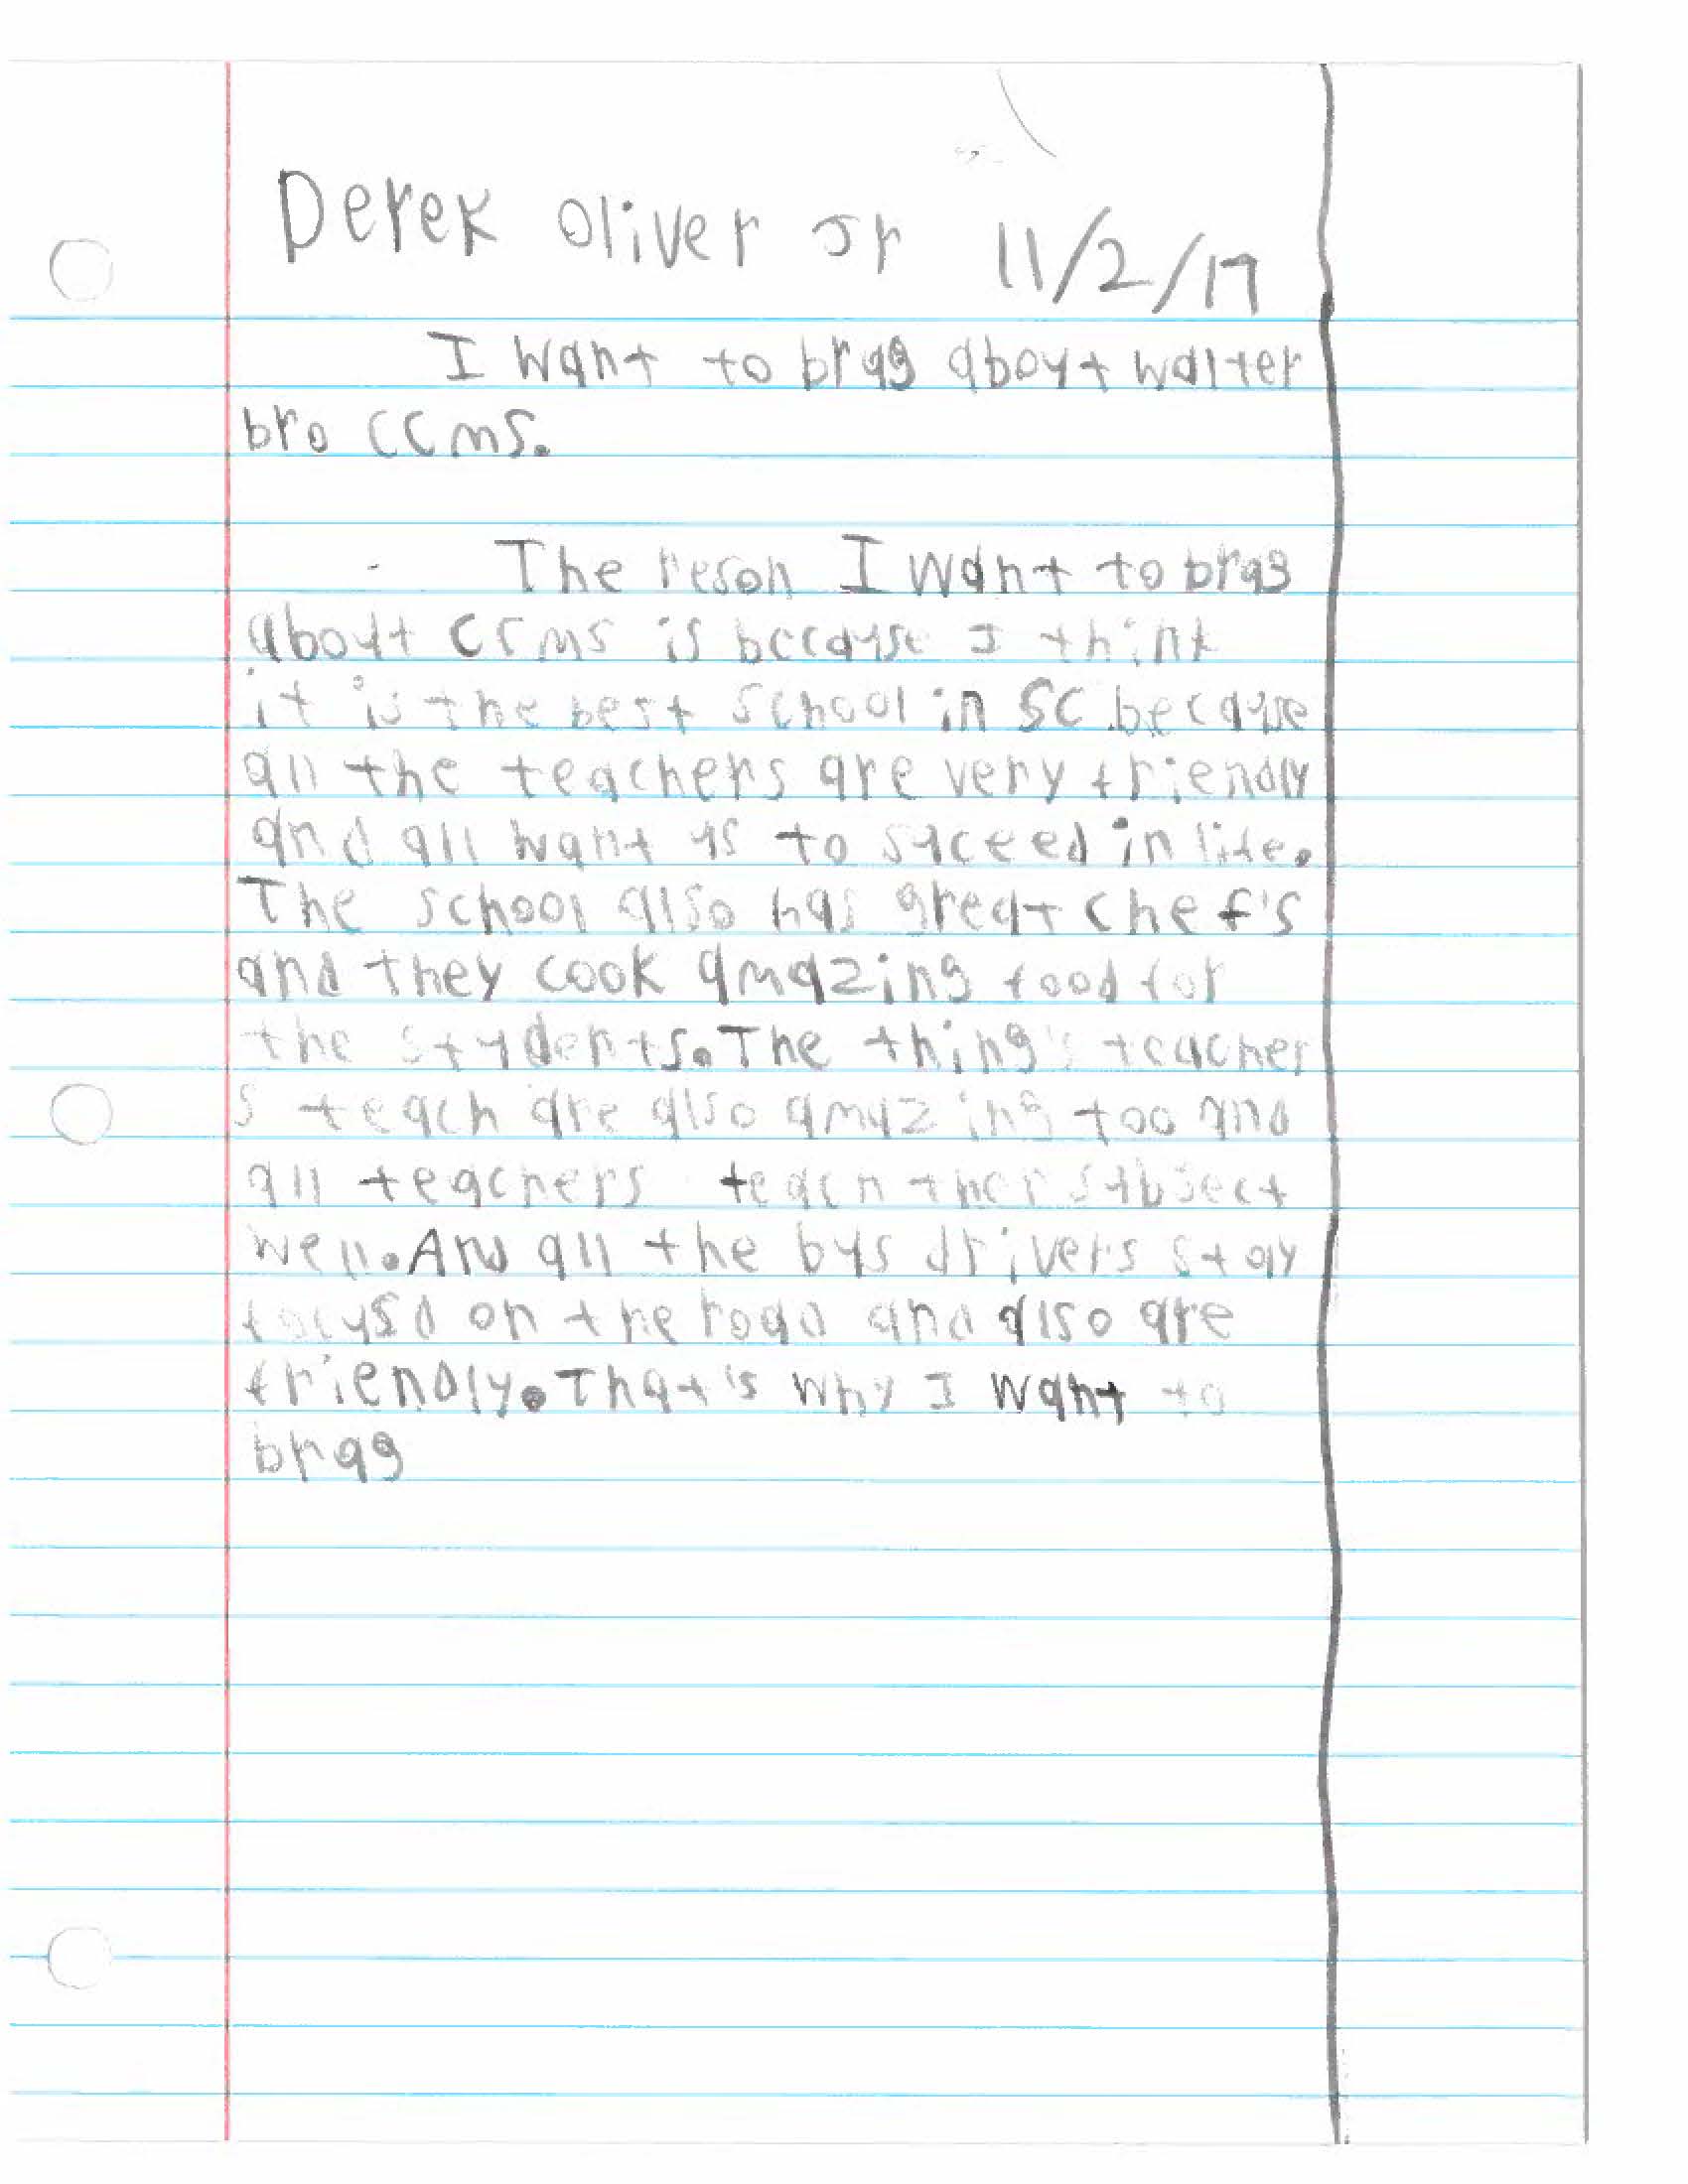 Derek Oliver Jr 11/2/17
I want to brag about walter
bro CCms.
The reson I want to brag
about CCMS is because I think
it is the best school in SC because
all the teachers are very friendly
and all want us to suceed in life.
The school also has great chef's
and they cook amazing food for
the students. The thing's teacher
s teach are also amazing too and
all teachers teach ther subject
well. And all the bus drivers stay
focusd on the road and also are
friendly. That's why I want to
brag